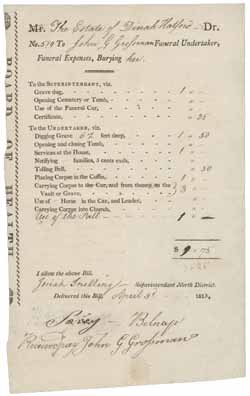 Mr. The Estate of Dinah Halford Dr.
No. 579 To John G Grosman Funeral Undertaker,
Funeral Expenses, Burying her.
To the SUPERINTENDANT, viz.
Grave dug, 1 "
Opening Cemetery or Tomb, " "
Use of the Funeral Car, " "
Certificate, " 25
To the UNDERTAKER, viz.
Digging Grave 6½ feet deep, 1 50
Opening and closing Tomb, " "
Services at the House, 1 "
Notifying families, 5 cents each, " "
Tolling Bell, " 50
Placing Corpse in the Coffin, 1 "
Carrying Corpse to the Car, and from thence to the
Vault or Grave, 3 "
Use of Horse in the Car, and Leader, " "
Carrying Corpse into Church, " "
Use of the Pall 1 —
$ 9 75
I allow the above Bill.
Josiah Snelling Superintendant North District.
Delivered this Bill April 3d 181
Savey — Belnap
John G Grosman
BOARD OF HEALTH